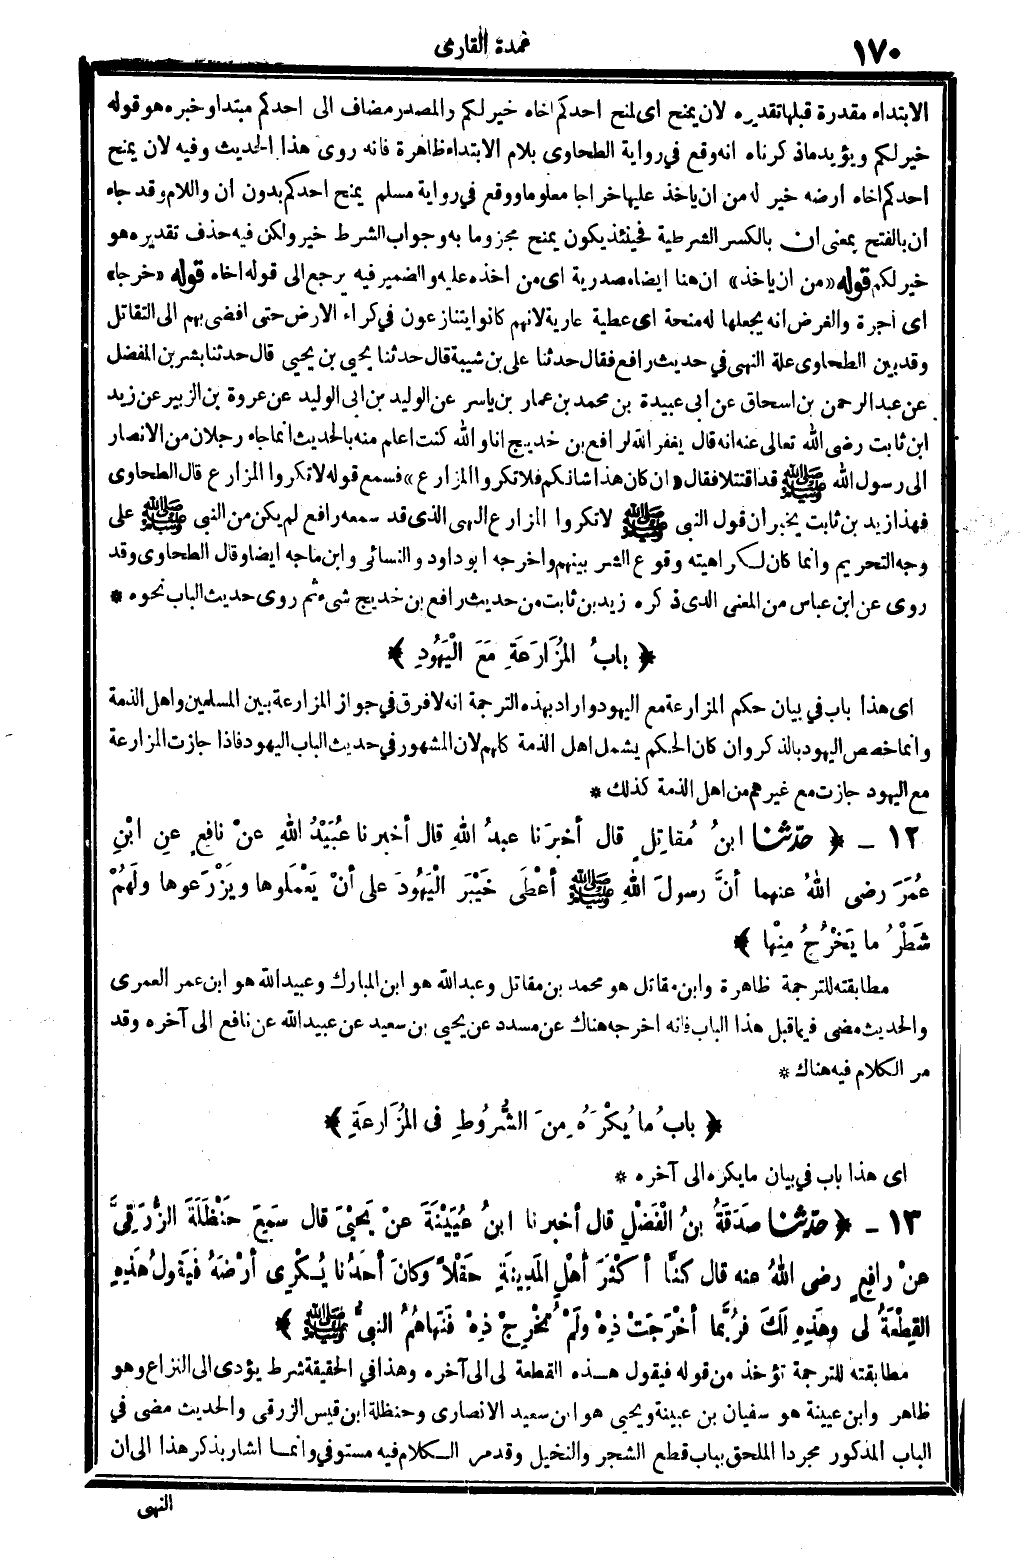 ١٧٠
عمدة القارى
الابتداء مقدرة قبلها تقديره لان يمنح اى لمنح احدكم اخاه خير لكم والمصدر مضاف الى احدكم مبتدا وخبره هو قوله
خير لكم ويؤيد ماذكرناه انه وقع في رواية الطحاوى بلام الابتداء ظاهرة فانه روى هذا الحديث وفيه لان يمنح
احدكم اخاه ارضه خير له من ان ياخذ عليها خراجا معلوما ووقع في رواية مسلم يمنح احدكم بدون ان واللام وقد جاء
ان بالفتح بمعنى ان بالكسر الشرطية فحينئذ يكون يمنح مجزوما به وجواب الشرط خير ولكن فيه حذف تقديره هو
خير لكم قوله «من ان ياخذ» ان هنا ايضا مصدرية اى من اخذه عليه والضمير فيه يرجع الى قوله اخاه قوله «خرجا»
اى اجرة والغرض انه يجعلها له منحة اى عطية عارية لانهم كانوا يتنازعون في كراء الارض حتى افضى بهم الى التقاتل
وقد بين الطحاوى علة النهى في حديث رافع فقال حدثنا على بن شيبة قال حدثنا يحيى بن يحيى قال حدثنا بشر بن المفضل
عن عبد الرحمن بن اسحاق عن ابى عبيدة بن محمد بن عمار بن ياسر عن الوليد بن ابى الوليد عن عروة بن الزبير عن زيد
ابن ثابت رضى الله تعالى عنه انه قال يغفر الله لرافع بن خديج انا والله كنت اعلم منه بالحديث انما جاء رجلان من الانصار
الى رسول الله ﷺ قد اقتتلا فقال «ان كان هذا شانكم فلا تكروا المزارع» فسمع قوله لا تكروا المزارع قال الطحاوى
فهذا زيد بن ثابت يخبر أن قول النبى ﷺ لا تكروا المزارع النهى الذى قد سمعه رافع لم يكن من النبى ﷺ على
وجه التحريم وانما كان لكراهيته وقوع الشر بينهم واخرجه ابوداود والنسائى وابن ماجه ايضا وقال الطحاوى وقد
روى عن ابن عباس من المعنى الذى ذكره زيد بن ثابت من حديث رافع بن خديج شىء ثم روى حديث الباب نحوه *
﴿ بابُ المُزَارَعَةِ مَعَ الْيَهُودِ ﴾
اى هذا باب في بيان حكم المزارعة مع اليهود واراد بهذه الترجمة انه لا فرق في جواز المزارعة بين المسلمين واهل الذمة
وانما خصص اليهود بالذكر وان كان الحكم يشمل اهل الذمة كلهم لان المشهور في حديث الباب اليهود فاذا جازت المزارعة
مع اليهود جازت مع غيرهم من اهل الذمة كذلك *
١٢ ـ ﴿ حدّثنا ابنُ مُقاتِلٍ قال أخبرَنا عبدُ اللهِ قال أخبرنا عُبَيْدُ اللهِ عنْ نافِعٍ عنِ ابْنِ
عُمَرَ رضى اللهُ عنهما أنَّ رسولَ اللهِ ﷺ أعْطَى خَيْبَرَ الْيَهُودَ على أنْ يَعْمَلوها ويَزْرَعوها ولَهُمْ
شَطْرُ ما يَخْرُجُ مِنْها ﴾
مطابقته للترجمة ظاهرة وابن مقاتل هو محمد بن مقاتل وعبدالله هو ابن المبارك وعبيدالله هو ابن عمر العمرى
والحديث مضى فيما قبل هذا الباب فانه اخرجه هناك عن مسدد عن يحيى بن سعيد عن عبيدالله عن نافع الى آخره وقد
مر الكلام فيه هناك *
﴿ بابُ ما يُكْرَهُ مِنَ الشُّرُوطِ فى المُزَارعَةِ ﴾
اى هذا باب في بيان مايكره الى آخره *
١٣ ـ ﴿ حدّثنا صَدَقَةُ بنُ الْفَضْلِ قال أخبرنا ابنُ عُيَيْنَةَ عنْ يَحْيَىٰ قال سَمِعَ حَنْظَلَةَ الزُّرَقِىَّ
عنْ رافِعٍ رضى اللهُ عنه قال كنَّا أكْثَرَ أهْلِ المَدِينَةِ حَقْلاً وكانَ أحَدُنا يُكْرِى أرْضَهُ فَيَقولُ هَذِهِ
القِطْعَةُ لى وهَذِهِ لَكَ فرُبَّما أخْرَجَتْ ذِهْ ولَمْ تُخْرِجْ ذِهْ فَنَهاهُمُ النبىُّ ﷺ ﴾
مطابقته للترجمة تؤخذ من قوله فيقول هذه القطعة لى الى آخره وهذا في الحقيقة شرط يؤدى الى النزاع وهو
ظاهر وابن عيينة هو سفيان بن عيينة ويحيى هو ابن سعيد الانصارى وحنظلة ابن قيس الزرقى والحديث مضى في
الباب المذكور مجردا الملحق بباب قطع الشجر والنخيل وقد مر الكلام فيه مستوفي وانما اشار بذكر هذا الى ان
النهى